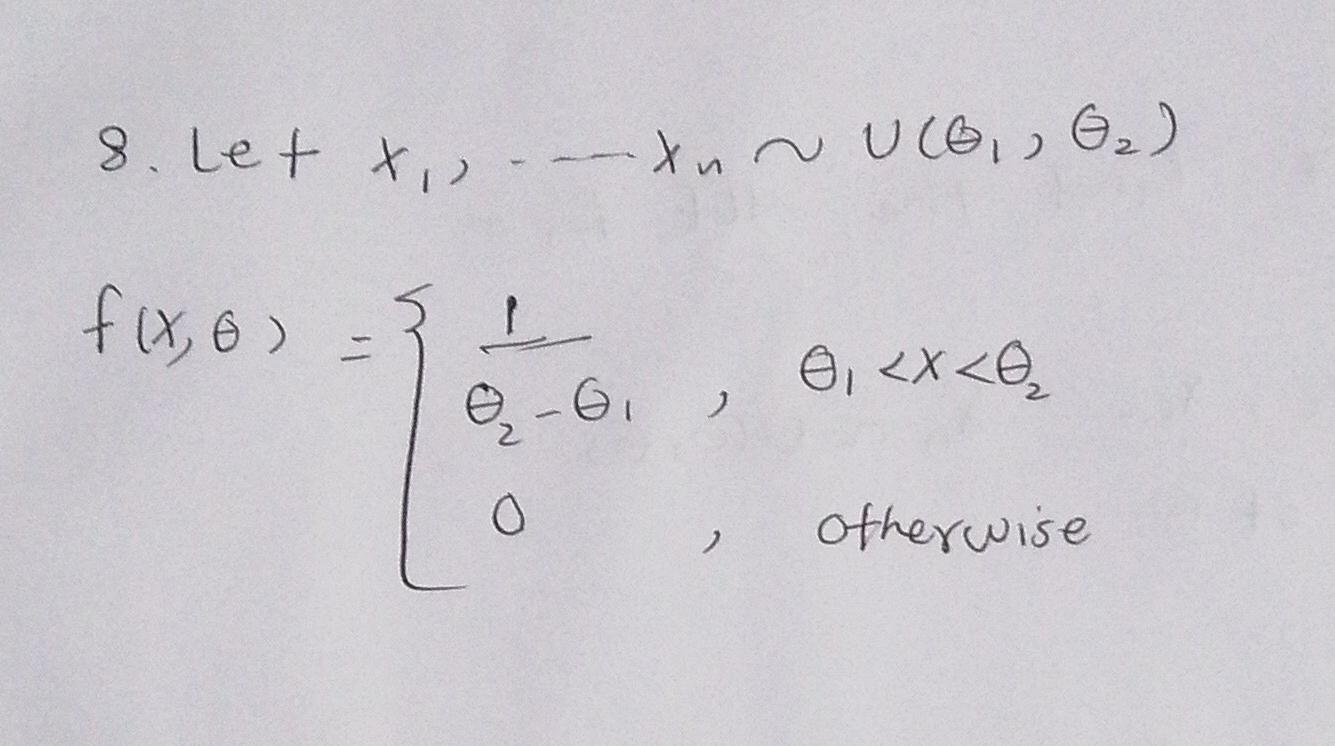 8. Let x₁, ----xₙ ~ U(θ₁, θ₂)
f(x,θ) = { 1/(θ₂-θ₁) , θ₁<x<θ₂
0 , otherwise